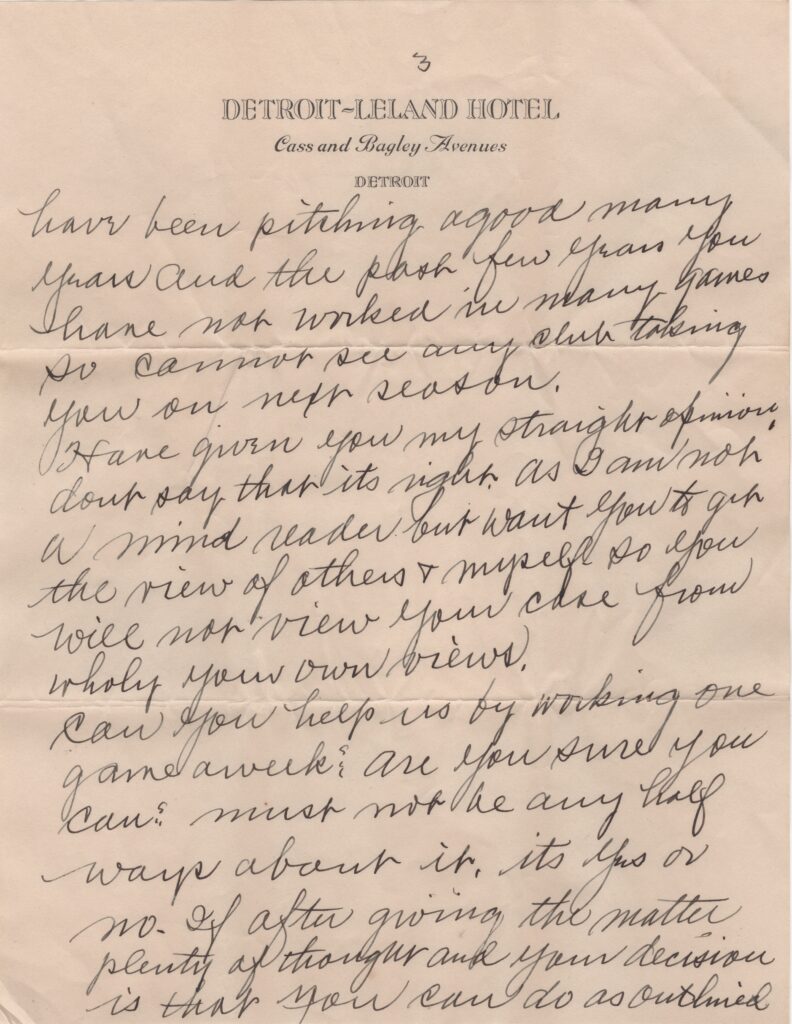 3
DETROIT-LELAND HOTEL
Cass and Bagley Avenues
DETROIT
have been pitching a good many
years and the past few years you
have not worked in many games
so cannot see any club taking
you on next season.
Have given you my straight opinion,
dont say that its right as I am not
a mind reader but want you to get
the view of others & myself so you
will not view your case from
wholy your own views.
can you help us by working one
game a week? are you sure you
can? must not be any half
ways about it. its yes or
no. If after giving the matter
plenty of thought and your decision
is that you can do as outlined